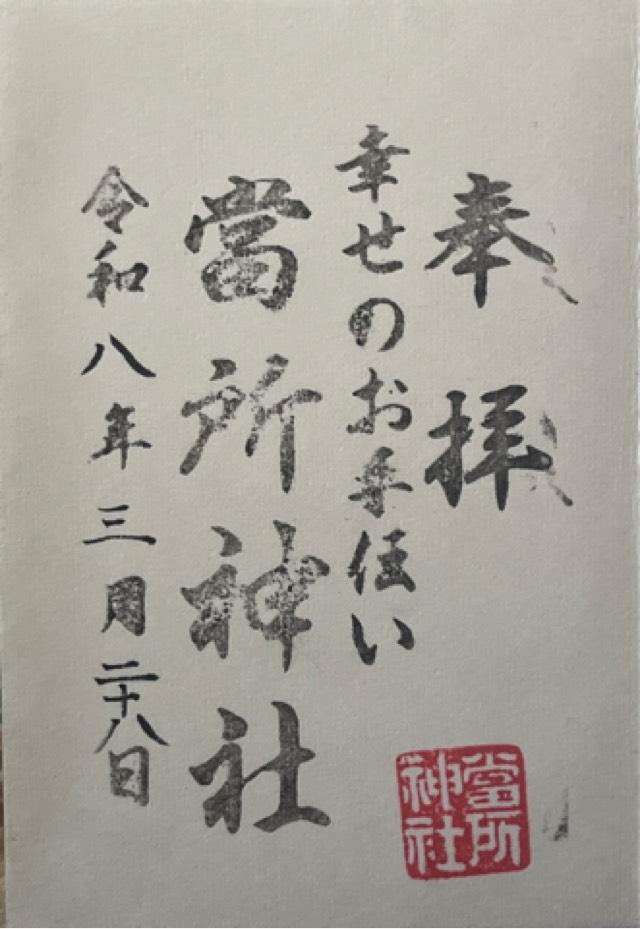 奉拝
幸せのお手伝い
當所神社
令和八年三月二十八日
當所
神社